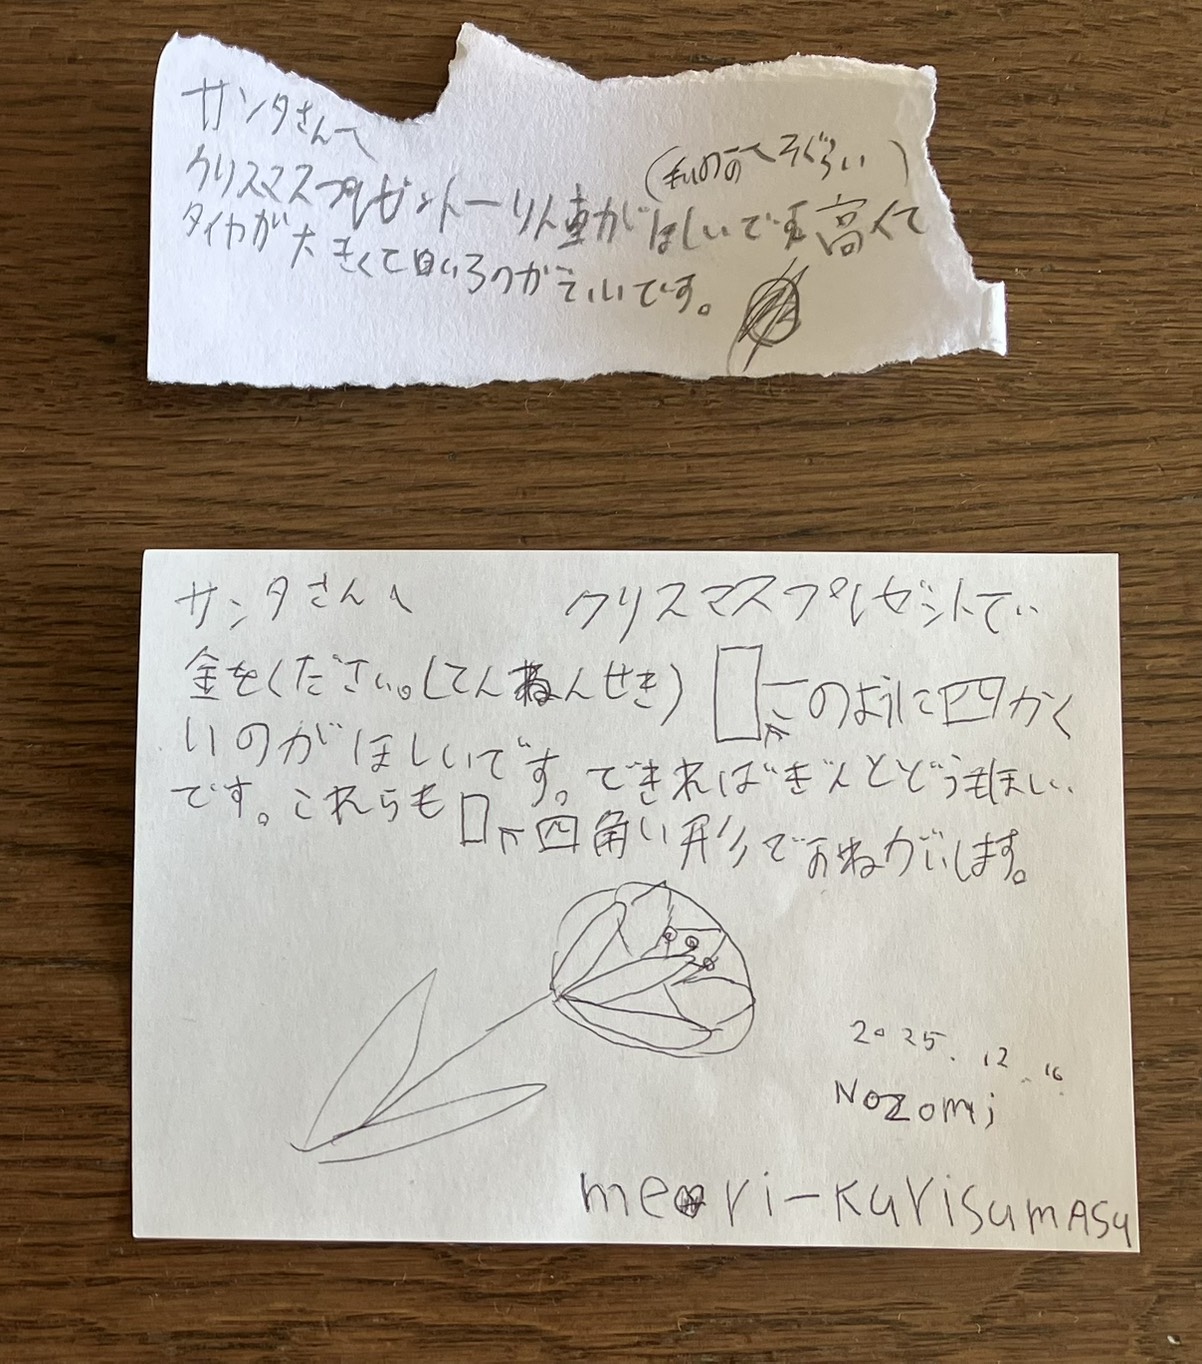 サンタさんへ
(私ののへそぐらい)
クリスマスプレゼント一りん車がほしいです高くて
タイヤが大きくて白いろのがいいです。
サンタさんへ クリスマスプレゼントでい
金をください。(てんねんせき) のように四かく
いのがほしいです。できればぎんとどうもほしい
です。これらも 四角い形でおねがいします。
2025.12.16
Nozomi
meri-kurisumasu